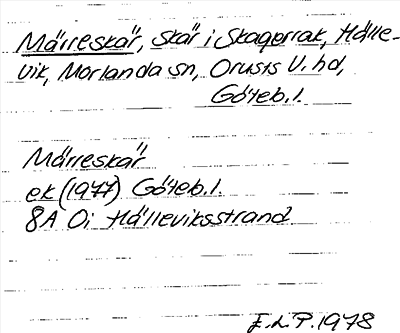 Märreskär, skär i Skagerrak, Hälle-
vik, Morlanda sn, Orusts V. hd,
Göteb. l.
Märreskär
ek (1977) Göteb. l.
8A Oi Hälleviksstrand
E.L.P. 1978